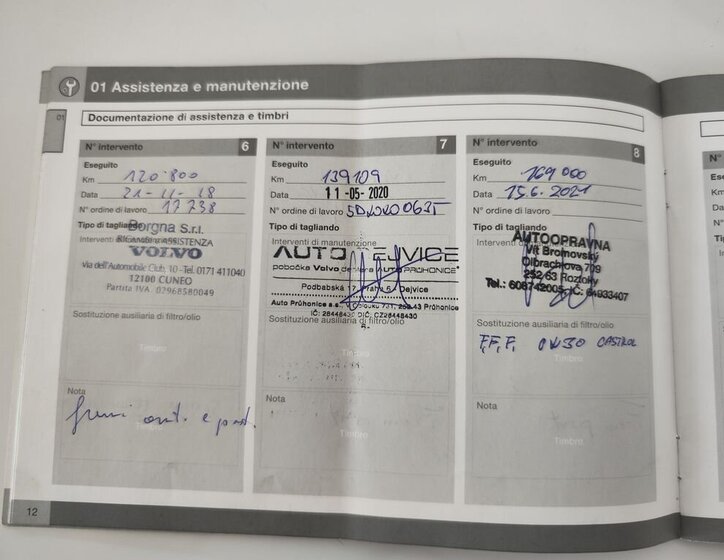 01 Assistenza e manutenzione
01
Documentazione di assistenza e timbri
N° intervento 6
Eseguito
Km 120.800
Data 21-11-18
N° ordine di lavoro 17738
Tipo di tagliando
Interventi
Borgna S.r.l.
ASSISTENZA
VOLVO
via dell'Automobile Club, 10 - Tel. 0171 411040
12100 CUNEO
Partita IVA. 02968580049
Sostituzione ausiliaria di filtro/olio
Timbro
Nota
freni ant. e post.
Timbro
N° intervento 7
Eseguito
Km 139109
Data 11-05-2020
N° ordine di lavoro
Tipo di tagliando
Interventi di manutenzione
AUTO DEJVICE
pobočka Volvo dealera AUTO PRŮHONICE
Podbabská 17, Praha 6, Dejvice
Auto Průhonice a.s. 252 43 Průhonice
IČ: 28448430 DIČ: CZ28448430
Sostituzione ausiliaria di filtro/olio
Timbro
Nota
Timbro
N° intervento 8
Eseguito
Km 169 000
Data 15.6.2021
N° ordine di lavoro
Tipo di tagliando
Interventi
AUTOOPRAVNA
Vít Bromovský
Dibrachova 709
252 63 Roztoky
Tel.: 608742005, IČ: 64933407
Sostituzione ausiliaria di filtro/olio
F.F.F. 0W30 CASTROL
Timbro
Nota
Timbro
12
N°
Es
Km
Data
N° o
Tipo
Inter
Sos
Not